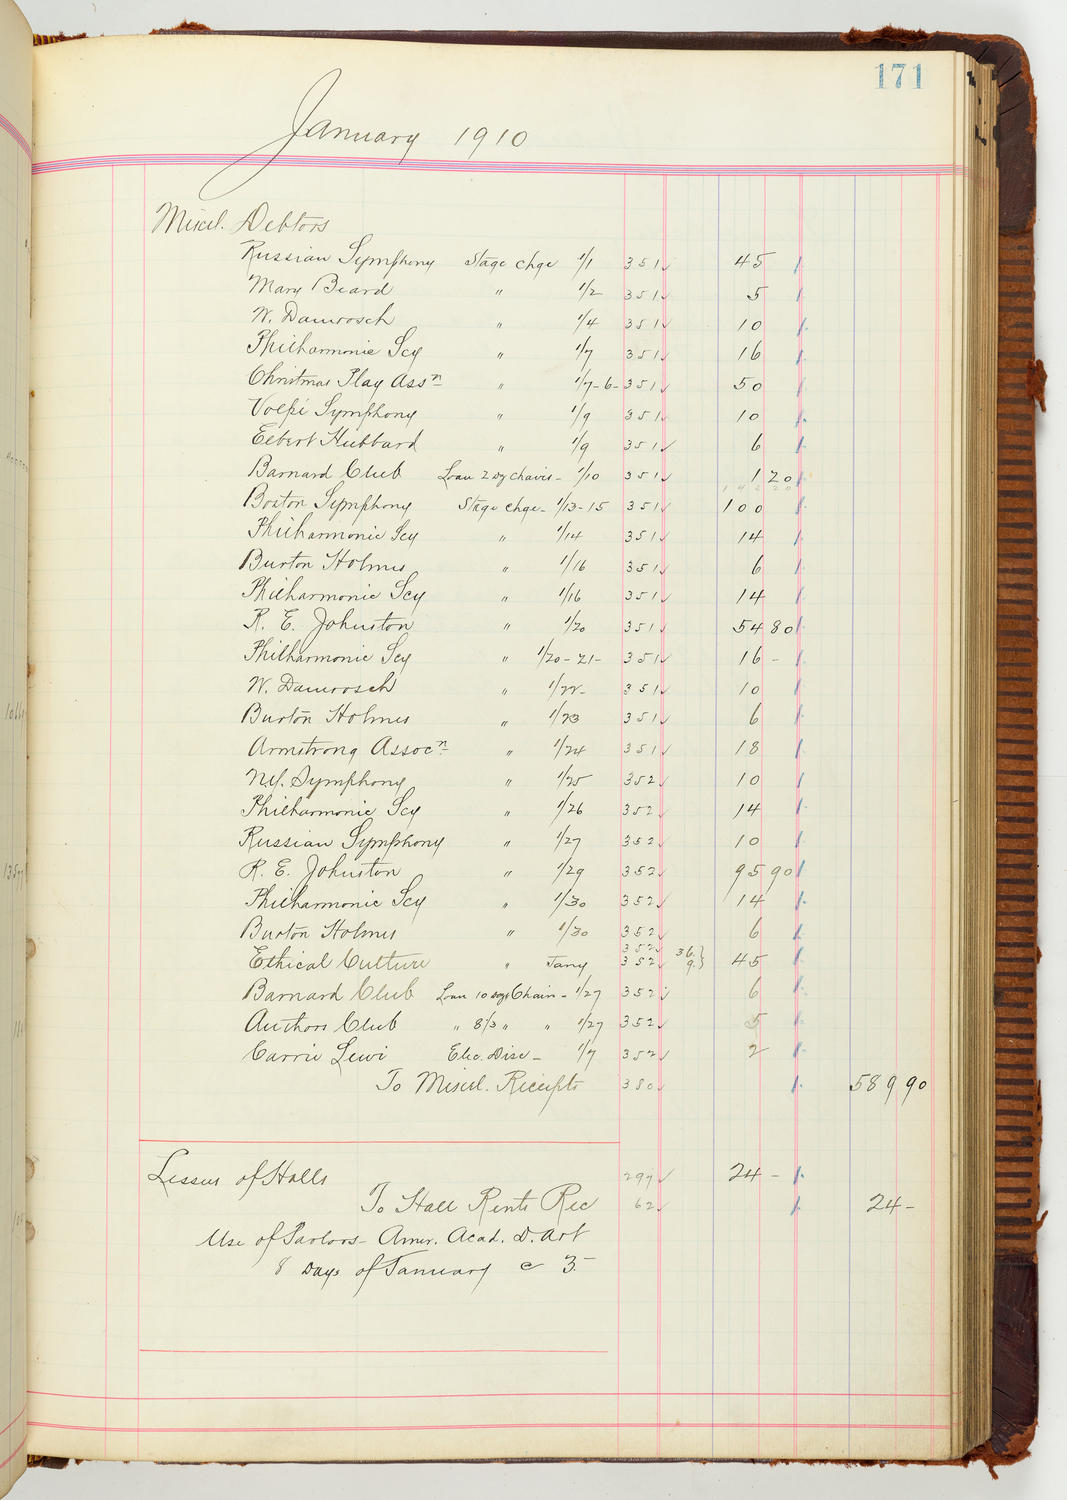 171
January 1910
Miscel. Debtors
Russian Symphony Stage chge 1/1 351 45
Mary Beard " 1/2 351 5
W. Damrosch " 1/4 351 10
Philharmonic Scy " 1/7 351 16
Christmas Play Assn " 1/7-6- 351 50
Volpé Symphony " 1/9 351 10
Elbert Hubbard " 1/9 351 6
Barnard Club Loan 2 Dz chairs - 1/10 351 1 20
Boston Symphony Stage chge - 1/13-15 351 100
Philharmonic Scy " 1/14 351 14
Burton Holmes " 1/16 351 6
Philharmonic Scy " 1/16 351 14
R. E. Johnston " 1/20 351 54 80
Philharmonic Scy " 1/20-21- 351 16 -
W. Damrosch " 1/22- 351 10
Burton Holmes " 1/23 351 6
Armstrong Assocn " 1/24 351 18
N.Y. Symphony " 1/25 352 10
Philharmonic Scy " 1/26 352 14
Russian Symphony " 1/27 352 10
R. E. Johnston " 1/29 352 95 90
Philharmonic Scy " 1/30 352 14
Burton Holmes " 1/30 352 6
352 36.
Ethical Culture " Jany 352 9. 45
Barnard Club Loan 10 doz Chairs - 1/27 352 6
Authors Club " 8 1/3 " " 1/27 352 5
Carrie Lewi Elec. Disc - 1/7 352 2
To Miscel. Receipts 380 589 90
Lessees of Halls 297 24 -
To Hall Rents Rec 62 24 -
Use of Parlors - Amer. Acad. D. Art
8 Days of January @ 3-